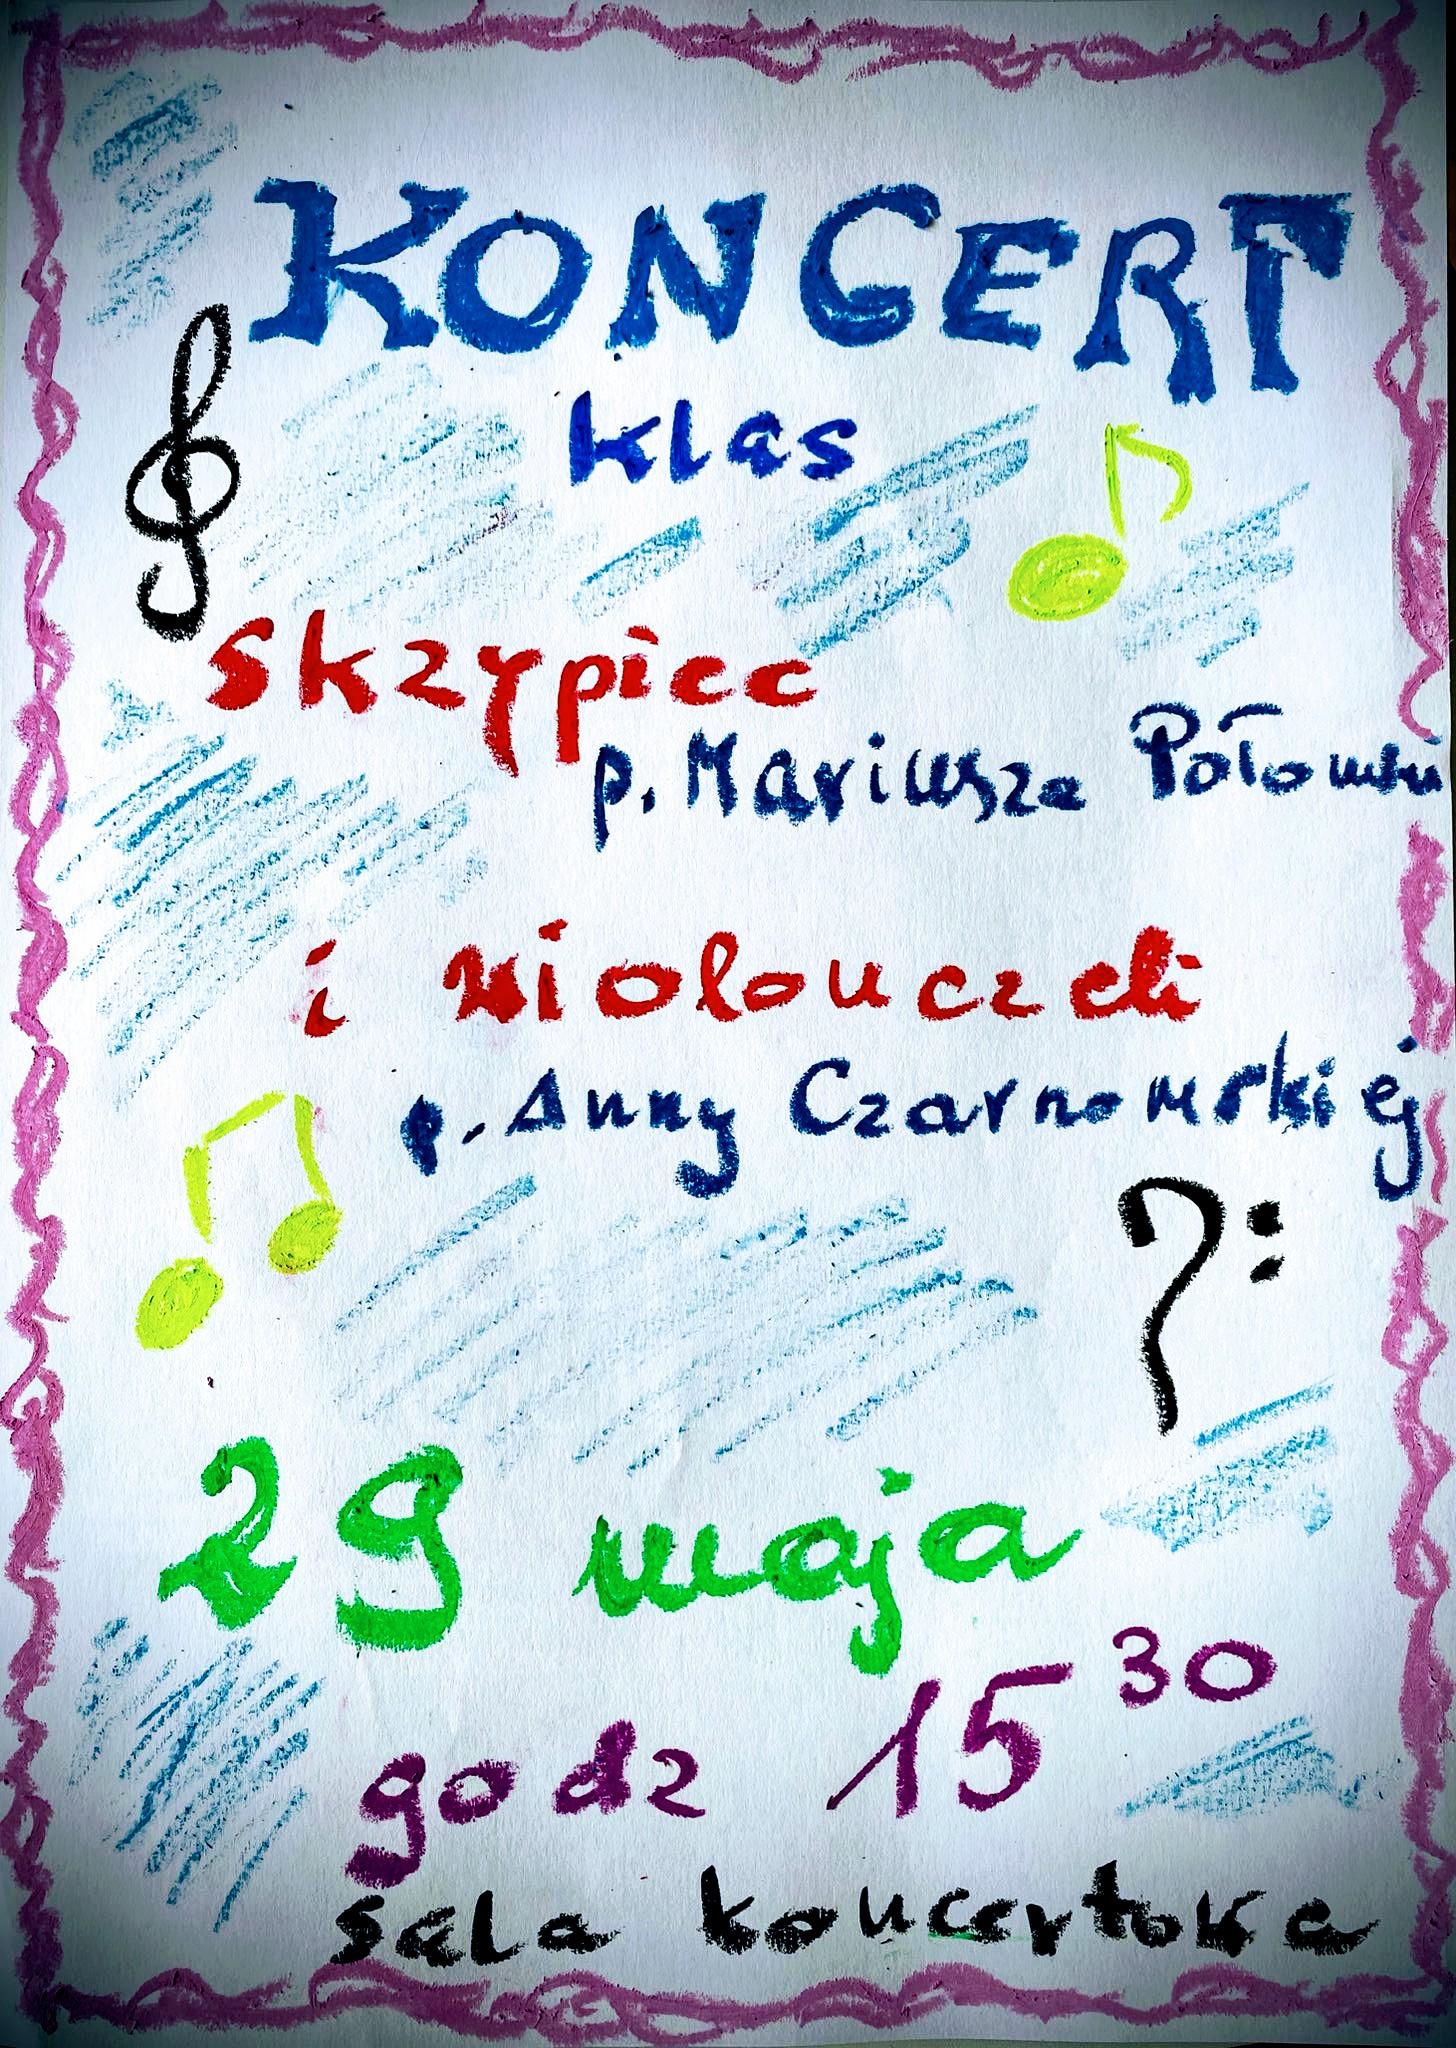 KONCERT
klas
skrzypiec
p. Mariusza
i wiolonczeli
p. Anny Czarnowskiej
29 maja
godz 15 30
sala koncertowa